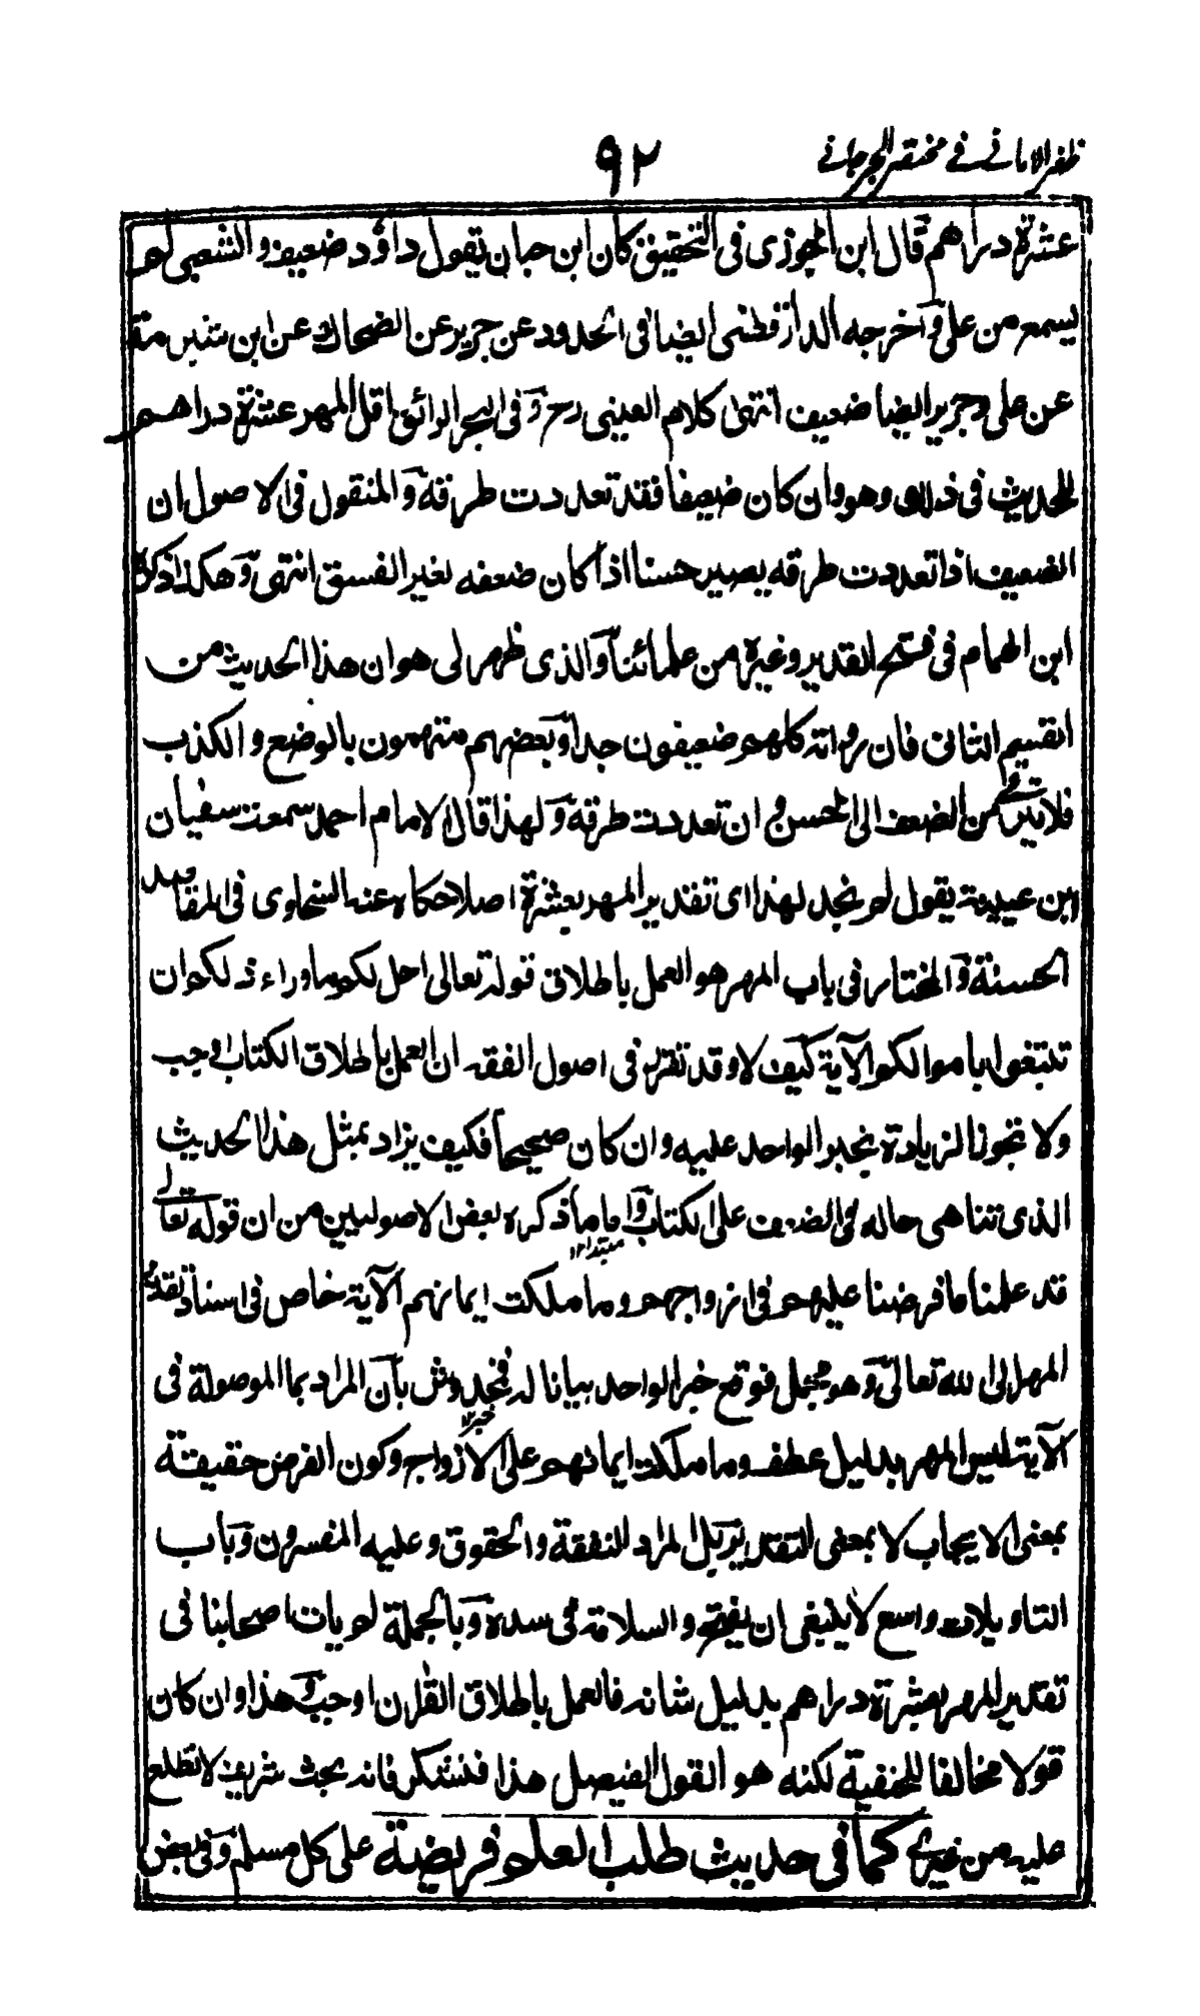 ظفر الامانی فی مختصر الجرجانی
٩٢
عشرة دراهم قال ابن الجوزی فی التحقیق کان ابن حبان یقول داؤد ضعیف والشعبی لم
یسمع من علی وآخرجه الدارقطنی ایضا فی الحدود عن جریر عن الضحاك عن ابن
عن علی وجریر ایضا ضعیف انتهی کلام العینی رح وفی البحر الرائق اقل المهر عشرة دراهم
للحدیث فی ذلك وهو وان کان ضعیفا فقد تعددت طرقه والمنقول فی الاصول ان
الضعیف اذا تعددت طرقه یصیر حسنا اذا کان ضعفه لغیر الفسق انتهی وهکذا ذکره
ابن الهمام فی فتح القدیر وغیره من علمائنا والذی ظهر لی هو ان هذا الحدیث من
القسم الثانی فان رواته کلهم ضعیفون جدا وبعضهم متهمون بالوضع والکذب
فلا یترقی من الضعف الی الحسن وان تعددت طرقه ولهذا قال الامام احمد سمعت سفیان
ابن عیینة یقول لم نجد لهذا ای تقدیر المهر بعشرة اصلا حکاه عنه السخاوی فی المقاصد
الحسنة والمختار فی باب المهر هو العمل باطلاق قوله تعالی احل لکم ما وراء ذلکم ان
تبتغوا باموالکم الآیة کیف لا وقد تقرر فی اصول الفقه ان العمل باطلاق الکتاب واجب
ولا تجوز الزیادة بخبر الواحد علیه وان کان صحیحا فکیف یزاد بمثل هذا الحدیث
الذی تناهی حاله فی الضعف علی الکتاب واما ما ذکره بعض الاصولیین من ان قوله تعالی
مبتدا١٢
قد علمنا ما فرضنا علیهم فی ازواجهم وما ملکت ایمانهم الآیة خاص فی اسناد تقدیر
المهر الی الله تعالی وهو مجمل فوقع خبر الواحد بیانا له فمخدوش بان المراد بما الموصولة فی
خبر١٢
الآیة لیس المهر بدلیل عطف وما ملکت ایمانهم علی الازواج وکون الفرض حقیقة
بمعنی الایجاب لا بمعنی التقدیر بل المراد النفقة والحقوق وعلیه المفسرون وباب
التاویلات واسع لا ینبغی ان یفتح والسلامة فی سده وبالجملة لم یات اصحابنا فی
تقدیر المهر بعشرة دراهم بدلیل شاف فالعمل باطلاق القرٰن اوجب هذا وان کان
قولا مخالفا للحنفیة لکنه هو القول الفیصل هذا فتشکر فانه بحث شریف لا تطلع
علیه من غیری کما فی حدیث طلب العلم فریضة علی کل مسلم وفی بعض